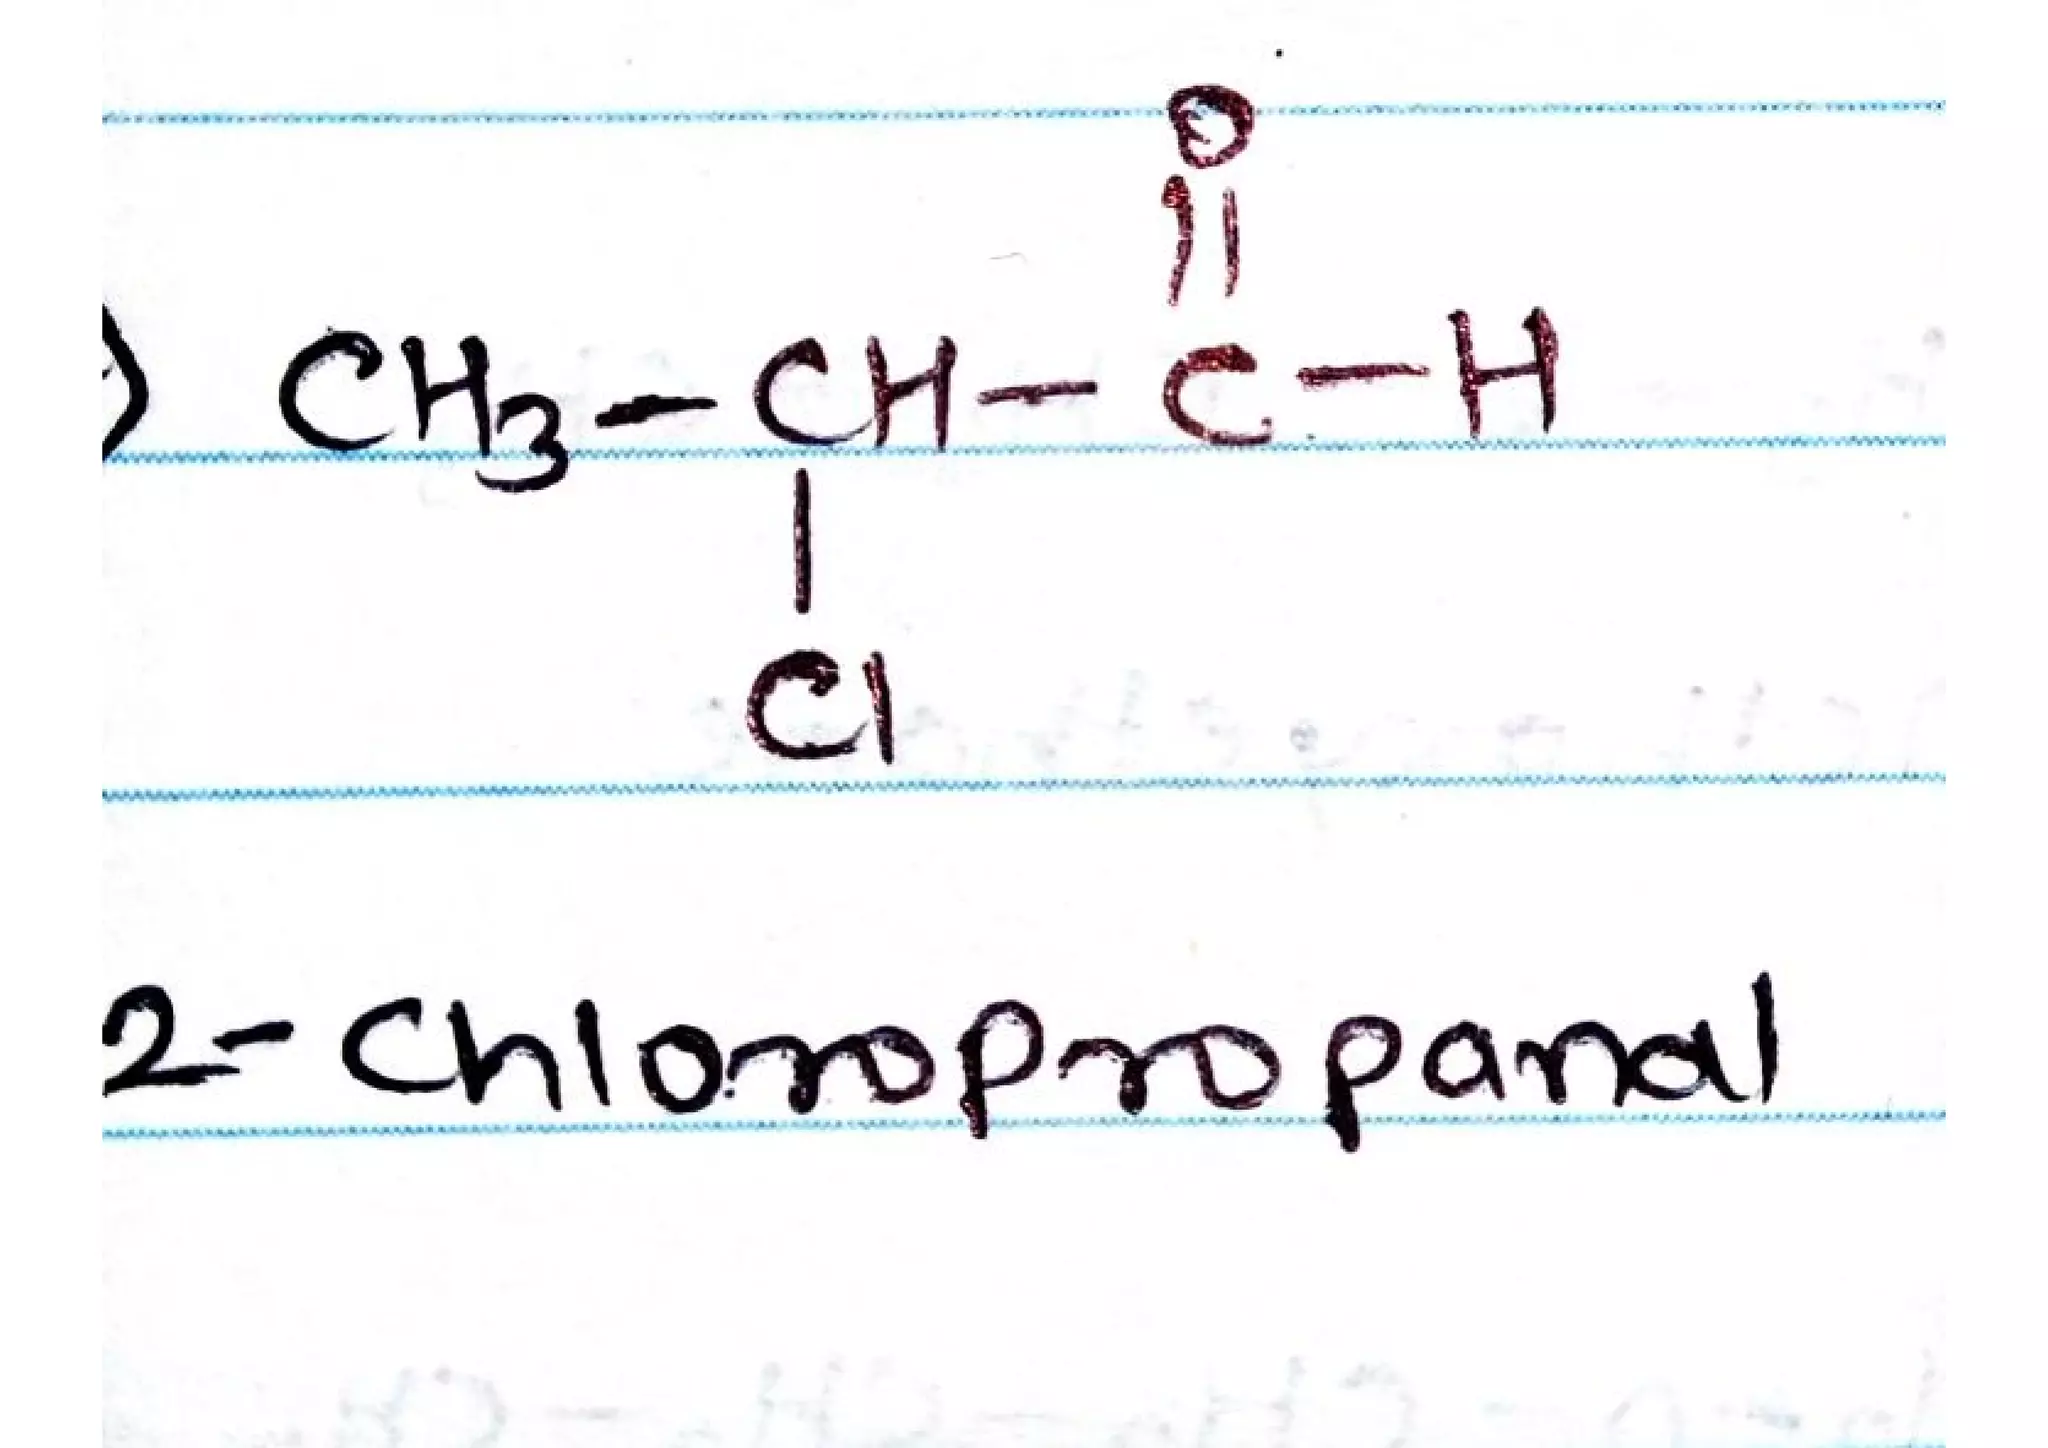 O
||
) CH3 - CH - C - H
|
Cl
2- Chloropropanal